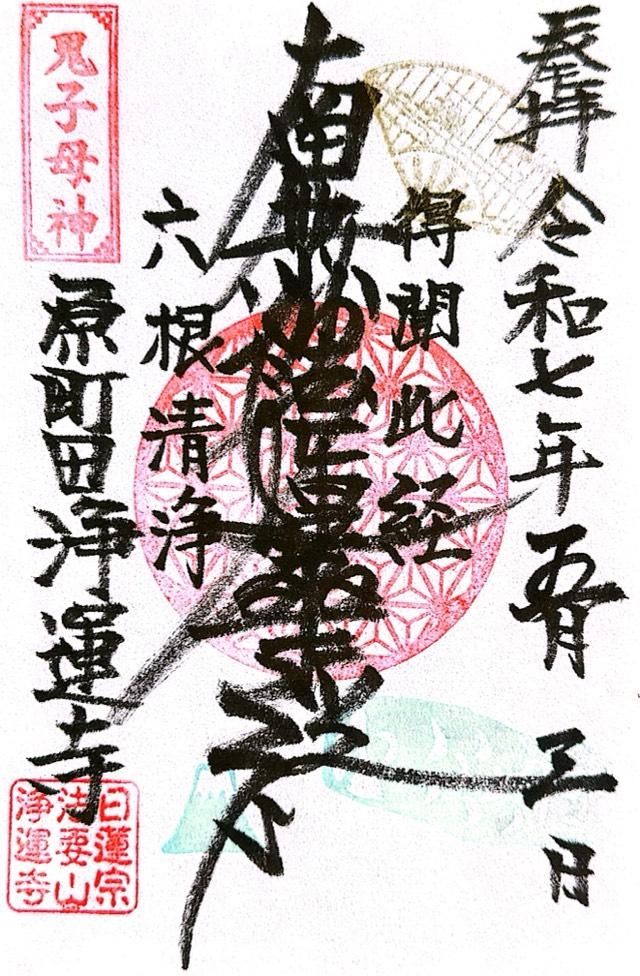 奉拝 令和七年五月三日
得聞此経
南無妙法蓮華経
六根清浄
鬼子母神
原町田浄運寺
日蓮宗
法要山
浄運寺